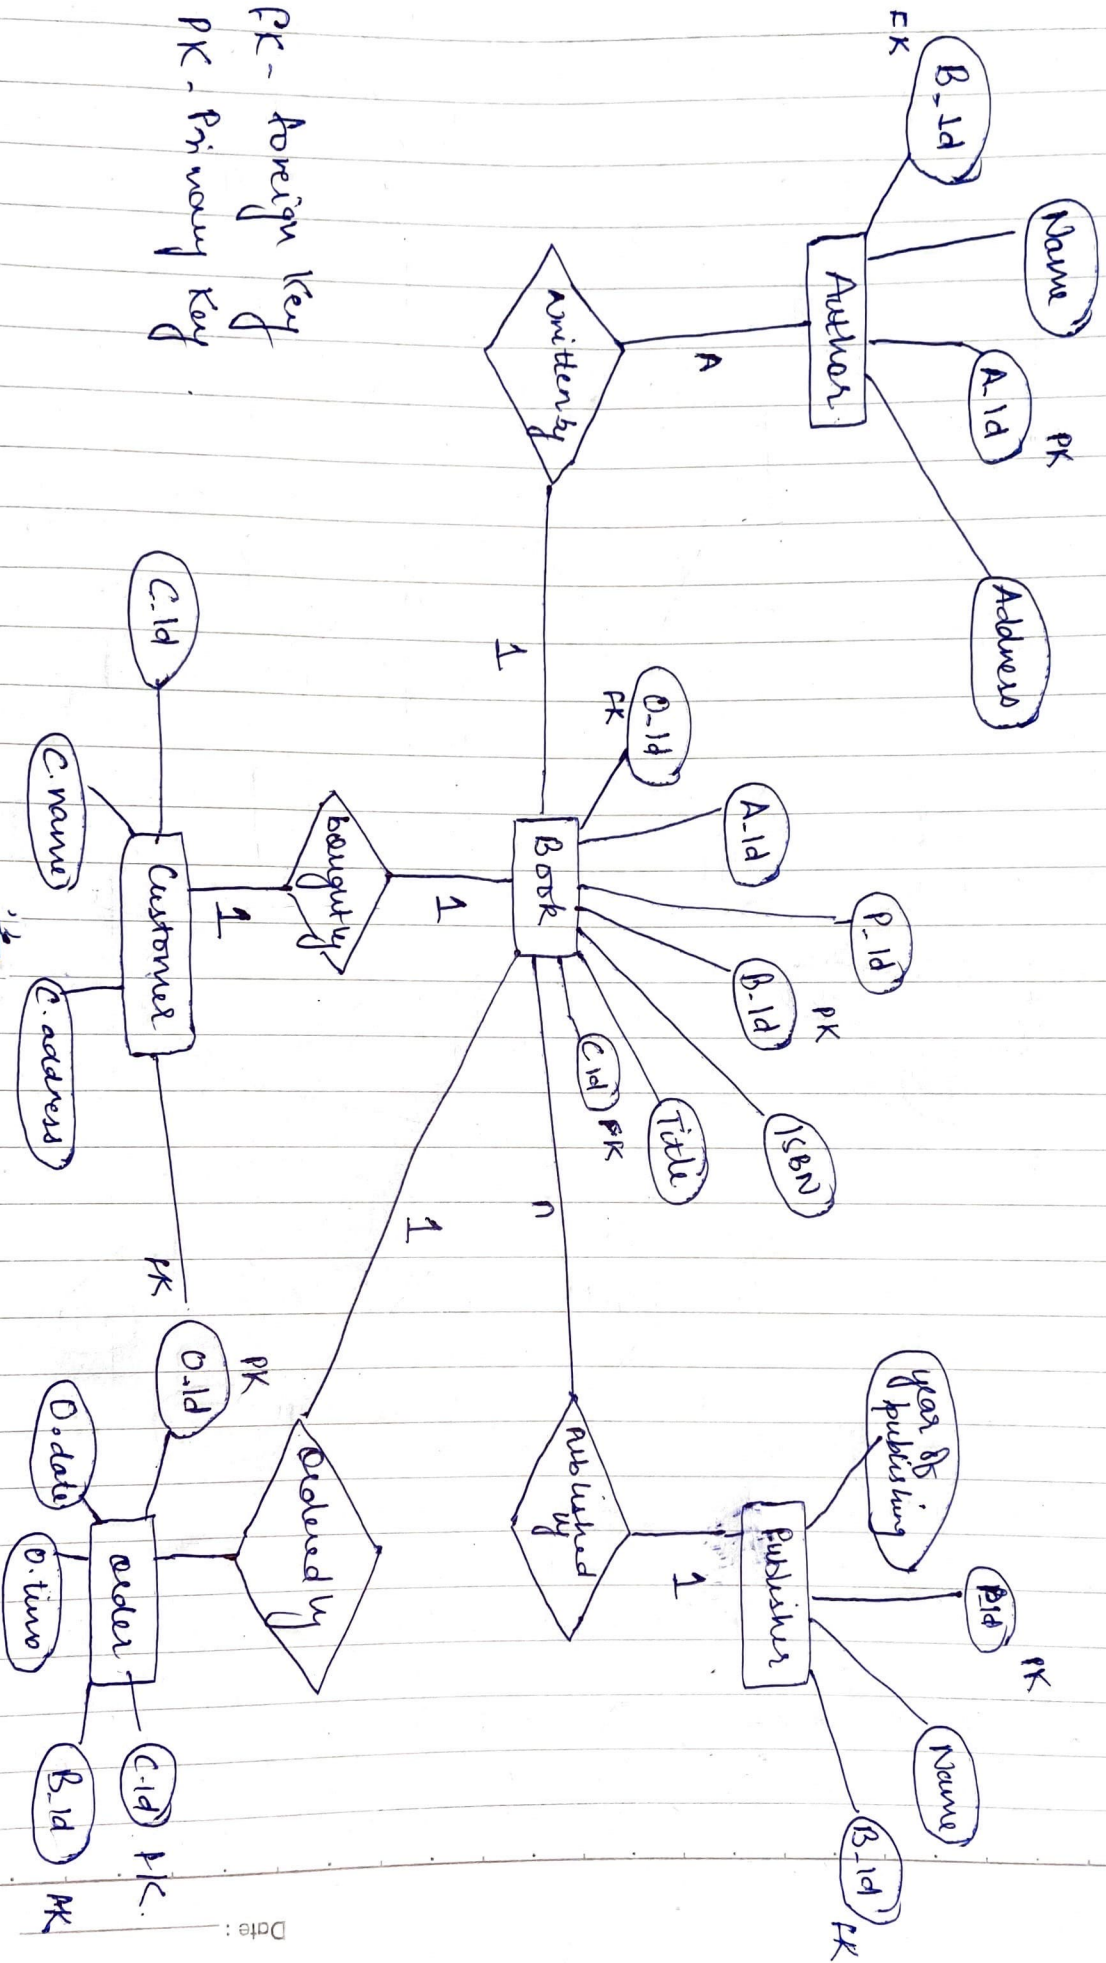 FK
B_Id
Name
A_Id
PK
Address
Author
A
Written by
1
O_Id
FK
A_Id
P_Id
B_Id
PK
ISBN
Title
C_id
FK
Book
1
bought by
1
C_Id
C.name
Customer
C.address
FK
n
published by
1
Publisher
year of publishing
P_Id
PK
Name
B_Id
FK
1
Ordered by
O_Id
PK
O.date
O.time
order
C_id
FK.
B_Id
FK
FK - foreign Key
PK - Primary Key.
Date :